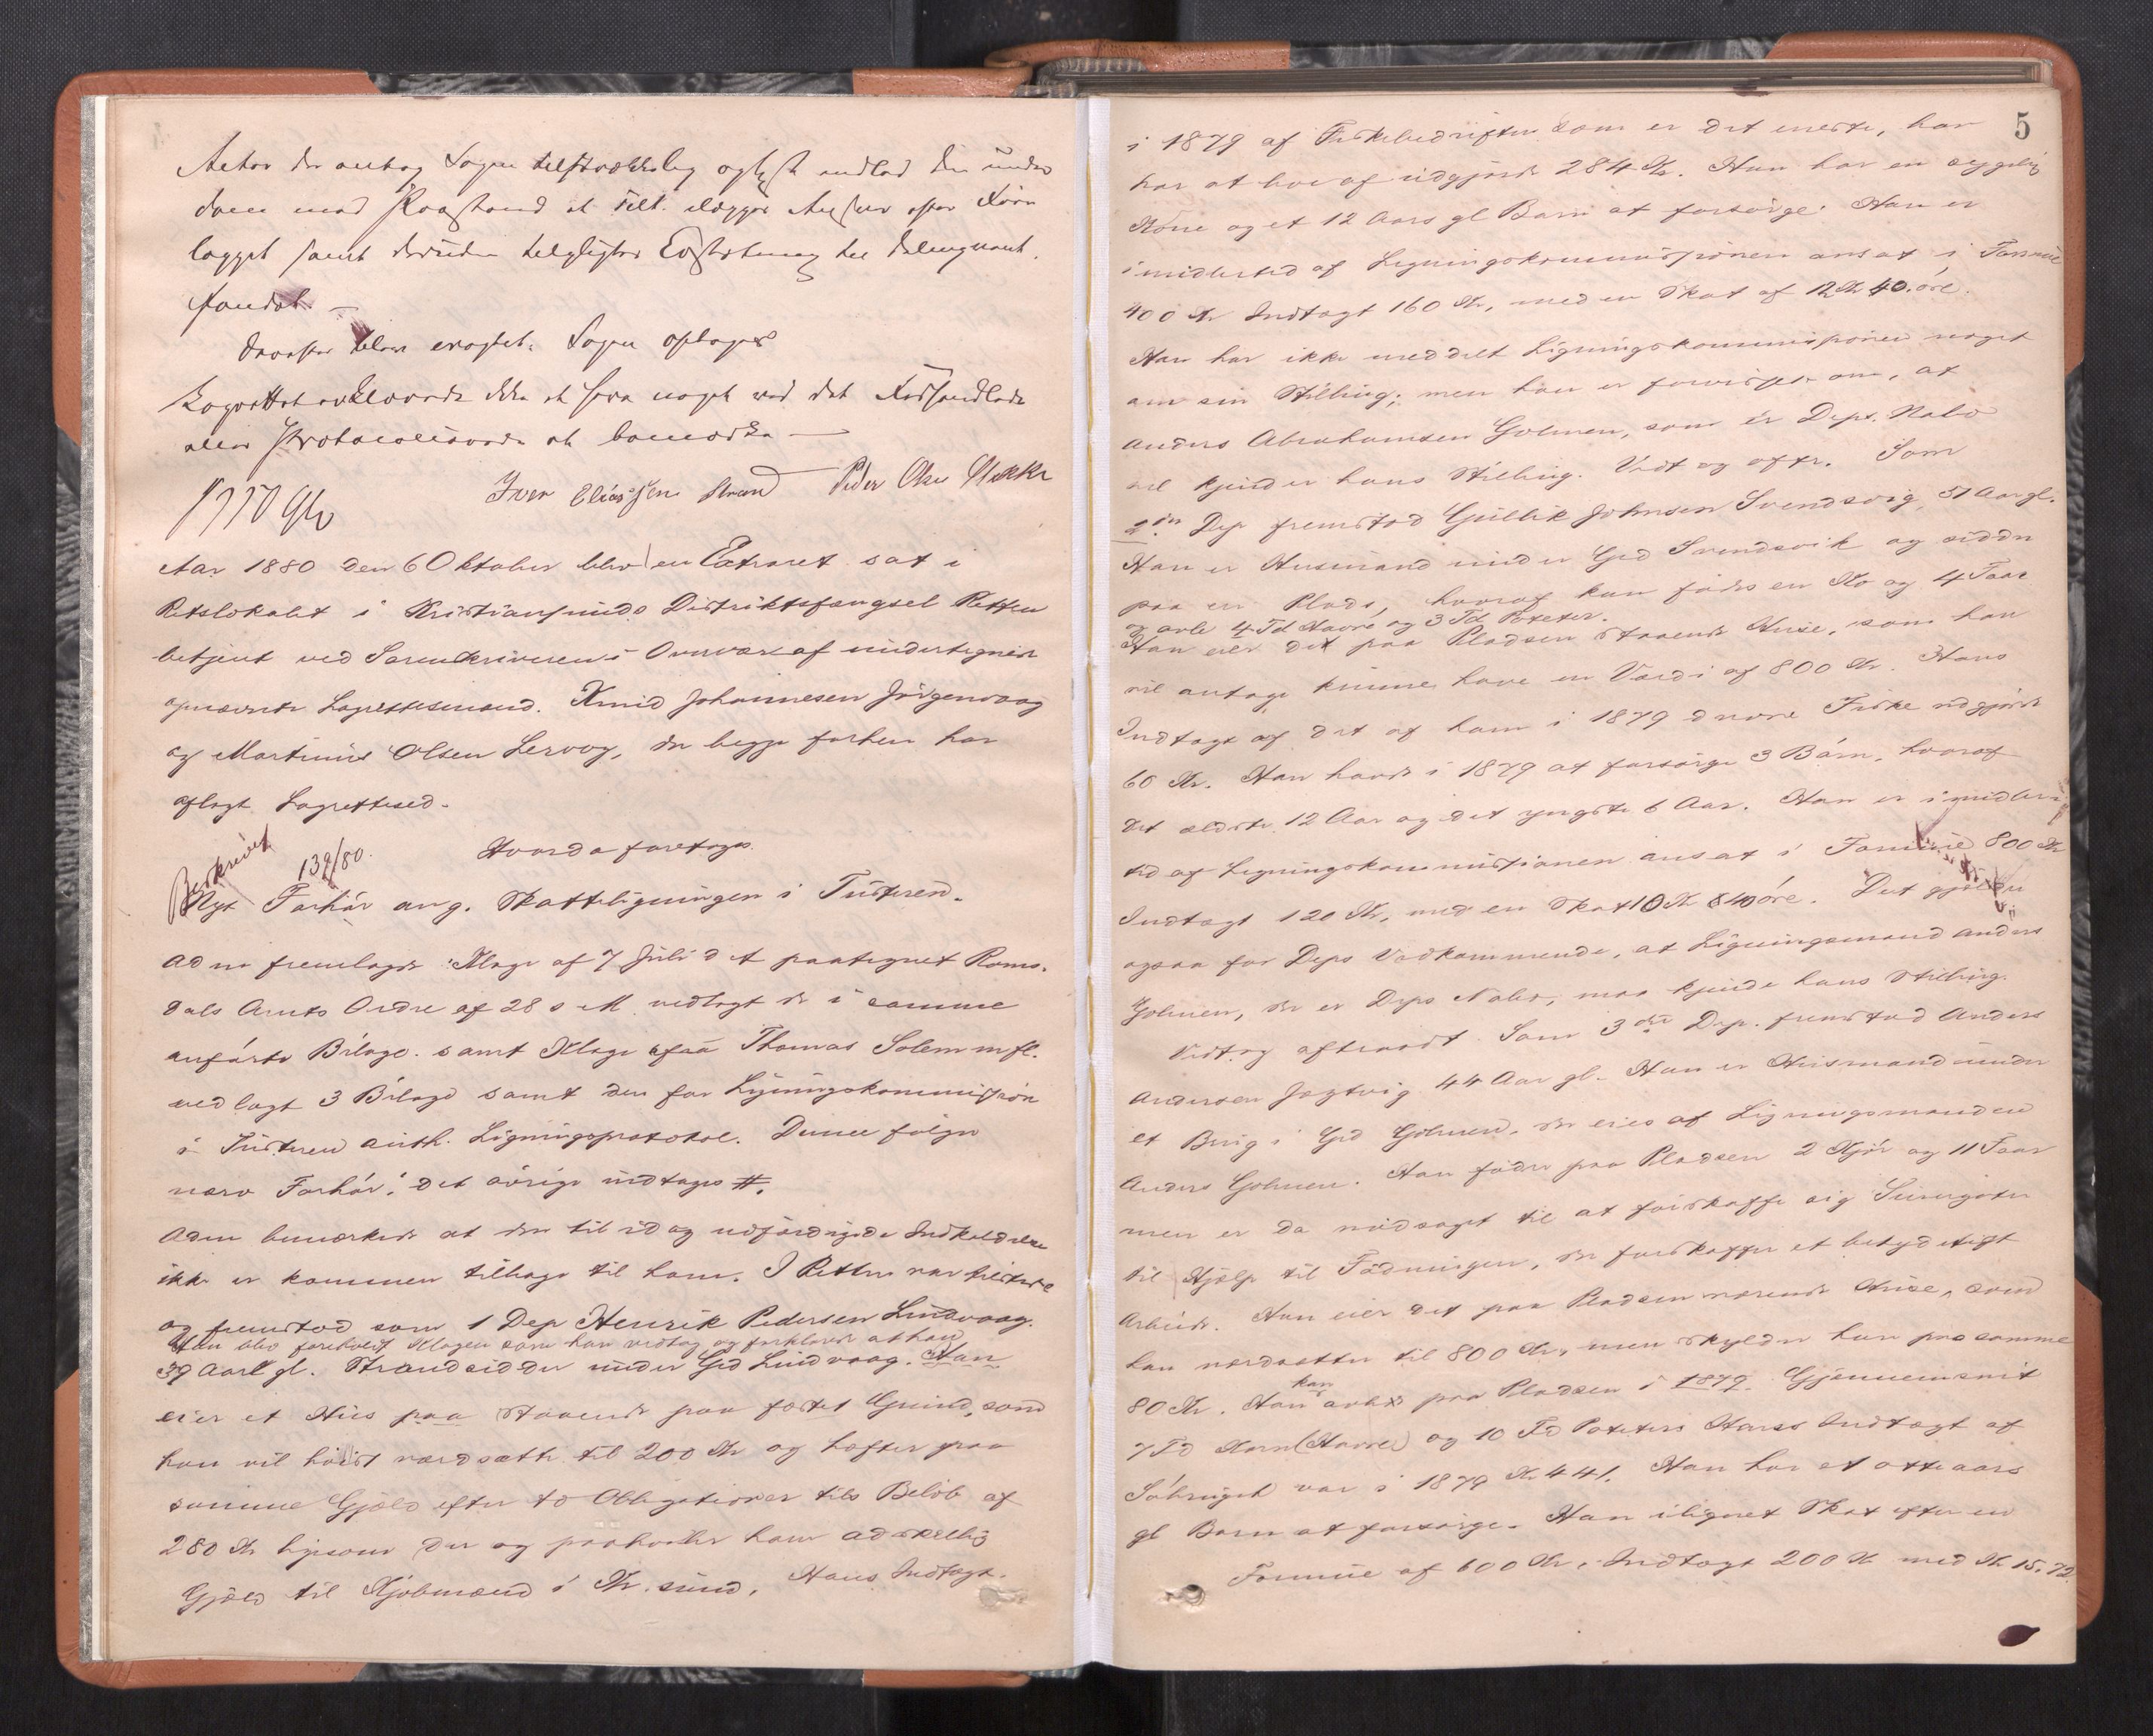 Actor der antog Sagen tilstrækkelig oplyst indlod den under
Dom med Paastand at Tilt. lægges Ansvar efter Loven
lagget samt desuden tilpligtes Erstatning til Delinqvent-
fondet. —
Derefter blev eragtet: Sagen optages
Lagrettet erklærede ikke at have noget ved det Forhandlede
eller Protocollerede at bemærke —
Iver Eliassen Strand Peder Olsen
Aar 1880 den 6 Oktober blev en Extraret sat i
Retslokalet i Kristiansunds Distriktsfængsel Retten
betjent ved Sorenskriveren i Overvær af undertegnede
opnævnte Lagrettesmænd. Knud Johannesen Jørgenvaag
og Martinus Olsen Lervog, der begge forhen har
aflagt Lagrettesed.
Hvorda foretoges
Beskrevet
139/80.
Nyt Forhør ang. Skatteligningen i Tustren.
Adm fremlagde Klage af 7 Juli d A paategnet Roms-
dals Amts Ordre af 28 s M. vedlagt de i samme
anførte Bilage. samt Klage fra Thomas Solem m fl.
vedlagt 3 Bilage samt den for Ligningskommission
i Tustren auth. Ligningsprotokol. Denne følger
nærv Forhør: det øvrige indtages #.
Adm bemærkede at den til idag udfærdigede Indkaldelse
ikke er kommen tilbage til ham. I Retten var tilstede
og fremstod som 1 Dep Henrik Pedersen Lindvaag.
Han blev foreholdt Klagen som han vedtog og forklarede at han
39 Aar gl. Strandsidder under Grd Lindvaag. Han
eier et Hus paa staaende paa fæstet Grund, som
han vil høist værdsætte til 200 Kr og hæfter paa
samme Gjæld efter to Obligationer tils Beløb af
280 Kr ligesom der og paahviler ham adskillig
Gjæld til Kjøbmænd i Kr.sund. Hans Indtægt
5
i 1879 af Fiskebedriften som er det eneste, han
har at leve af udgjorde 284 Kr. Han har en sygelig
Kone og et 12 Aars gl Barn at forsørge. Han er
imidlertid af Ligningskommissionen ansat i Formue
400 Kr Indtægt 160 Kr, med en Skat af 12 Kr 40 øre.
Han har ikke meddelt Ligningskommissionen noget
om sin Stilling; men han er forvisset om, at
Anders Abrahamsen Golmen, som er Deps. Nabo
vel kjender hans Stilling. Vedt og aftr. Som
2den Dep fremstod Gullik Johnsen Svendsvig, 51 Aar gl.
Han er Husmand under Grd Svendsvik og sidder
paa en Plads, hvoraf kan fødes en Ko og 4 Faar
og avle 4 Td Havre og 3 Td Poteter.
Han eier det paa Pladsen staaende Huse, som han
vil antage kunne have en Værdi af 800 Kr. Hans
Indtægt af det af ham i 1879 drevne Fiske udgjorde
60 Kr. Han havde i 1879 at forsørge 3 Børn, hvoraf
det ældste 12 Aar og det yngste 6 Aar. Han er imidler-
tid af Ligningskommissionen ansat i Formue 800 Kr
Indtægt 120 Kr, med en Skat 10 Kr 40 øre. Det gjælder
ogsaa for Deps Vedkommende, at Ligningsmand Anders
Golmen, der er Deps Nabo, maa kjende hans Stilling.
Vedtog aftraadt. Som 3die Dep. fremstod Anders
Andersen Jagtvig 44 Aar gl. Han er Husmand under
et Brug i Grd Golmen, der eies af Ligningsmanden
Anders Golmen. Han føder paa Pladsen 2 Kjør og 11 Faar
men er da nødsaget til at forskaffe sig
til Hjælp til Fødningen, der forskaffer et betydeligt
Arbeide. Han eier det paa Pladsen værende Huse, som
han værdsætter til 800 Kr, men skylder han paa samme
80 Kr. Han kan avle paa Pladsen i 1879 Gjennemsnit
7 Td Korn (Havre) og 10 Td Poteter. Hans Indtægt af
Søbruget var i 1879 Kr 441. Han har et otte aars
gl Barn at forsørge. Han ilignet Skat efter en
Formue af 600 Kr, Indtægt 200 Kr med Kr 15.72.